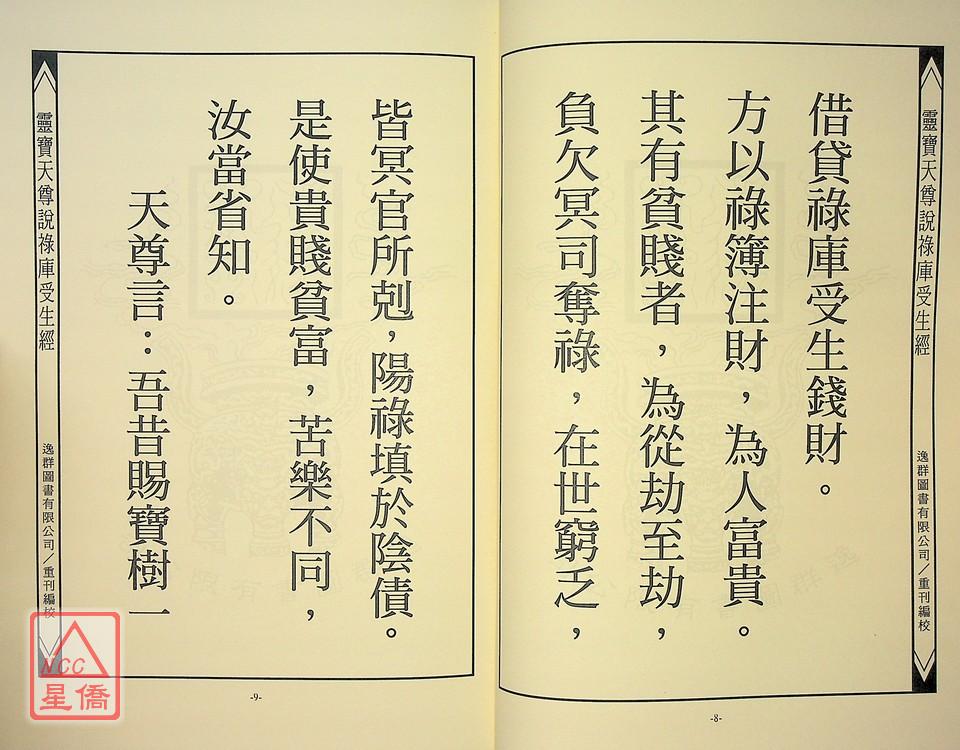 靈寶天尊說祿庫受生經
逸群圖書有限公司/重刊編校
借貸祿庫受生錢財。
方以祿簿注財，為人富貴。
其有貧賤者，為從劫至劫，
負欠冥司奪祿，在世窮乏，
-8-
皆冥官所剋，陽祿填於陰債。
是使貴賤貧富，苦樂不同，
汝當省知。
天尊言：吾昔賜寶樹一
靈寶天尊說祿庫受生經
逸群圖書有限公司/重刊編校
-9-
NCC
星僑